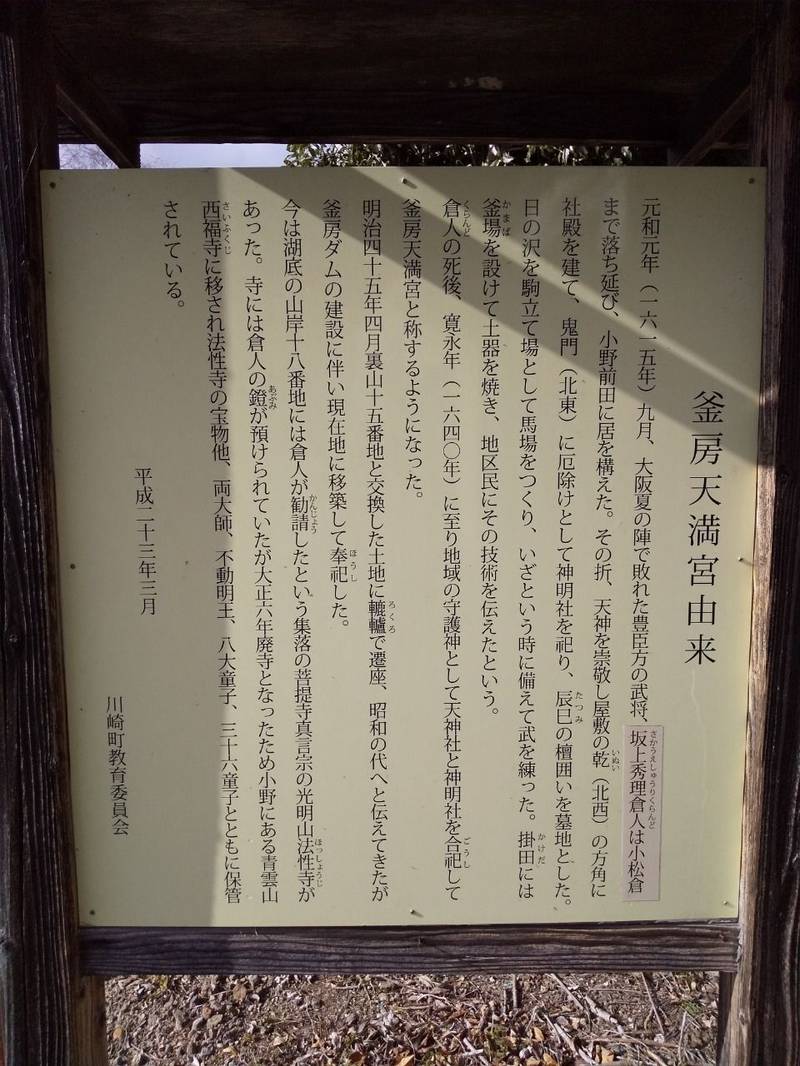 釜房天満宮由来
元和元年（一六一五年）九月、大阪夏の陣で敗れた豊臣方の武将、坂上秀理倉人は小松倉
まで落ち延び、小野前田に居を構えた。その折、天神を崇敬し屋敷の乾（北西）の方角に
社殿を建て、鬼門（北東）に厄除けとして神明社を祀り、辰巳の檀囲いを墓地とした。
日の沢を駒立て場として馬場をつくり、いざという時に備えて武を練った。掛田には
釜場を設けて土器を焼き、地区民にその技術を伝えたという。
倉人の死後、寛永年（一六四〇年）に至り地域の守護神として天神社と神明社を合祀して
釜房天満宮と称するようになった。
明治四十五年四月裏山十五番地と交換した土地に轆轤で遷座、昭和の代へと伝えてきたが
釜房ダムの建設に伴い現在地に移築して奉祀した。
今は湖底の山岸十八番地には倉人が勧請したという集落の菩提寺真言宗の光明山法性寺が
あった。寺には倉人の鐙が預けられていたが大正六年廃寺となったため小野にある青雲山
西福寺に移され法性寺の宝物他、両大師、不動明王、八大童子、三十六童子とともに保管
されている。
平成二十三年三月
川崎町教育委員会